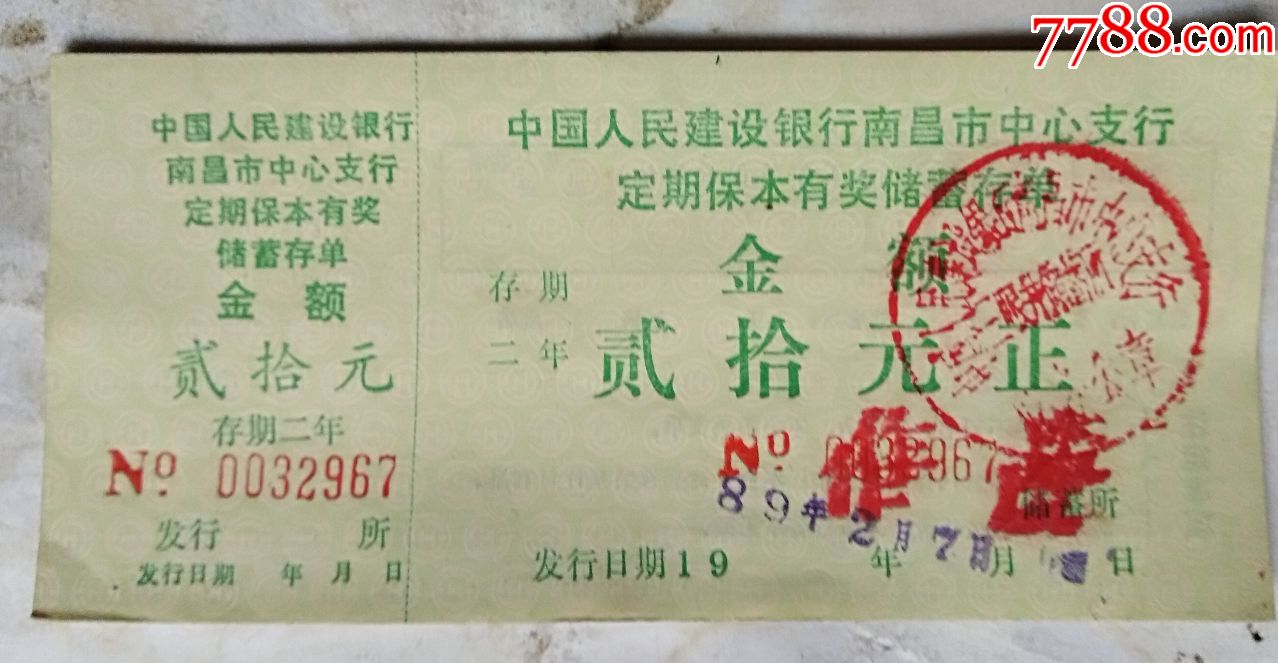 7788.com
中国人民建设银行
南昌市中心支行
定期保本有奖
储蓄存单
金 额
贰拾元
存期二年
No 0032967
发行 所
发行日期 年 月 日
中国人民建设银行南昌市中心支行
定期保本有奖储蓄存单
金 额
存 期
二 年
贰 拾 元 正
No 0032967
89年2月7日
储蓄所
发行日期19 年 月 日